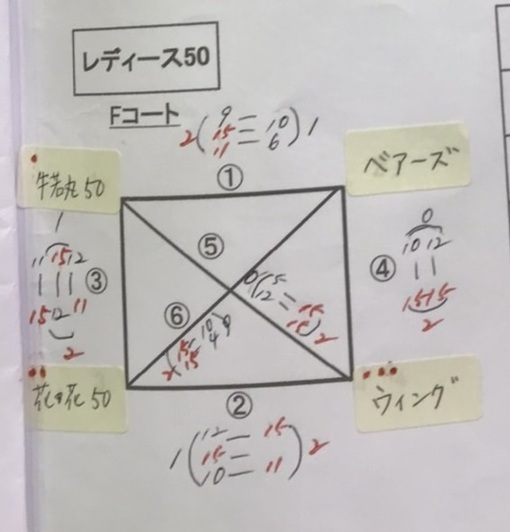 レディース50
Fコート
2 ( 9 — 10 ) 1
15 —
11 — 6
牛若丸50
ベアーズ
①
1
11 15 12
| | |
15 12 11
2
③
⑤
④
0
10 12
| |
15 15
2
0
5
12 — 15
15
2
⑥
15 — 10
15 4
2
花・花50
ウィング
②
1 ( 12 — 15 ) 2
15 —
10 — 11